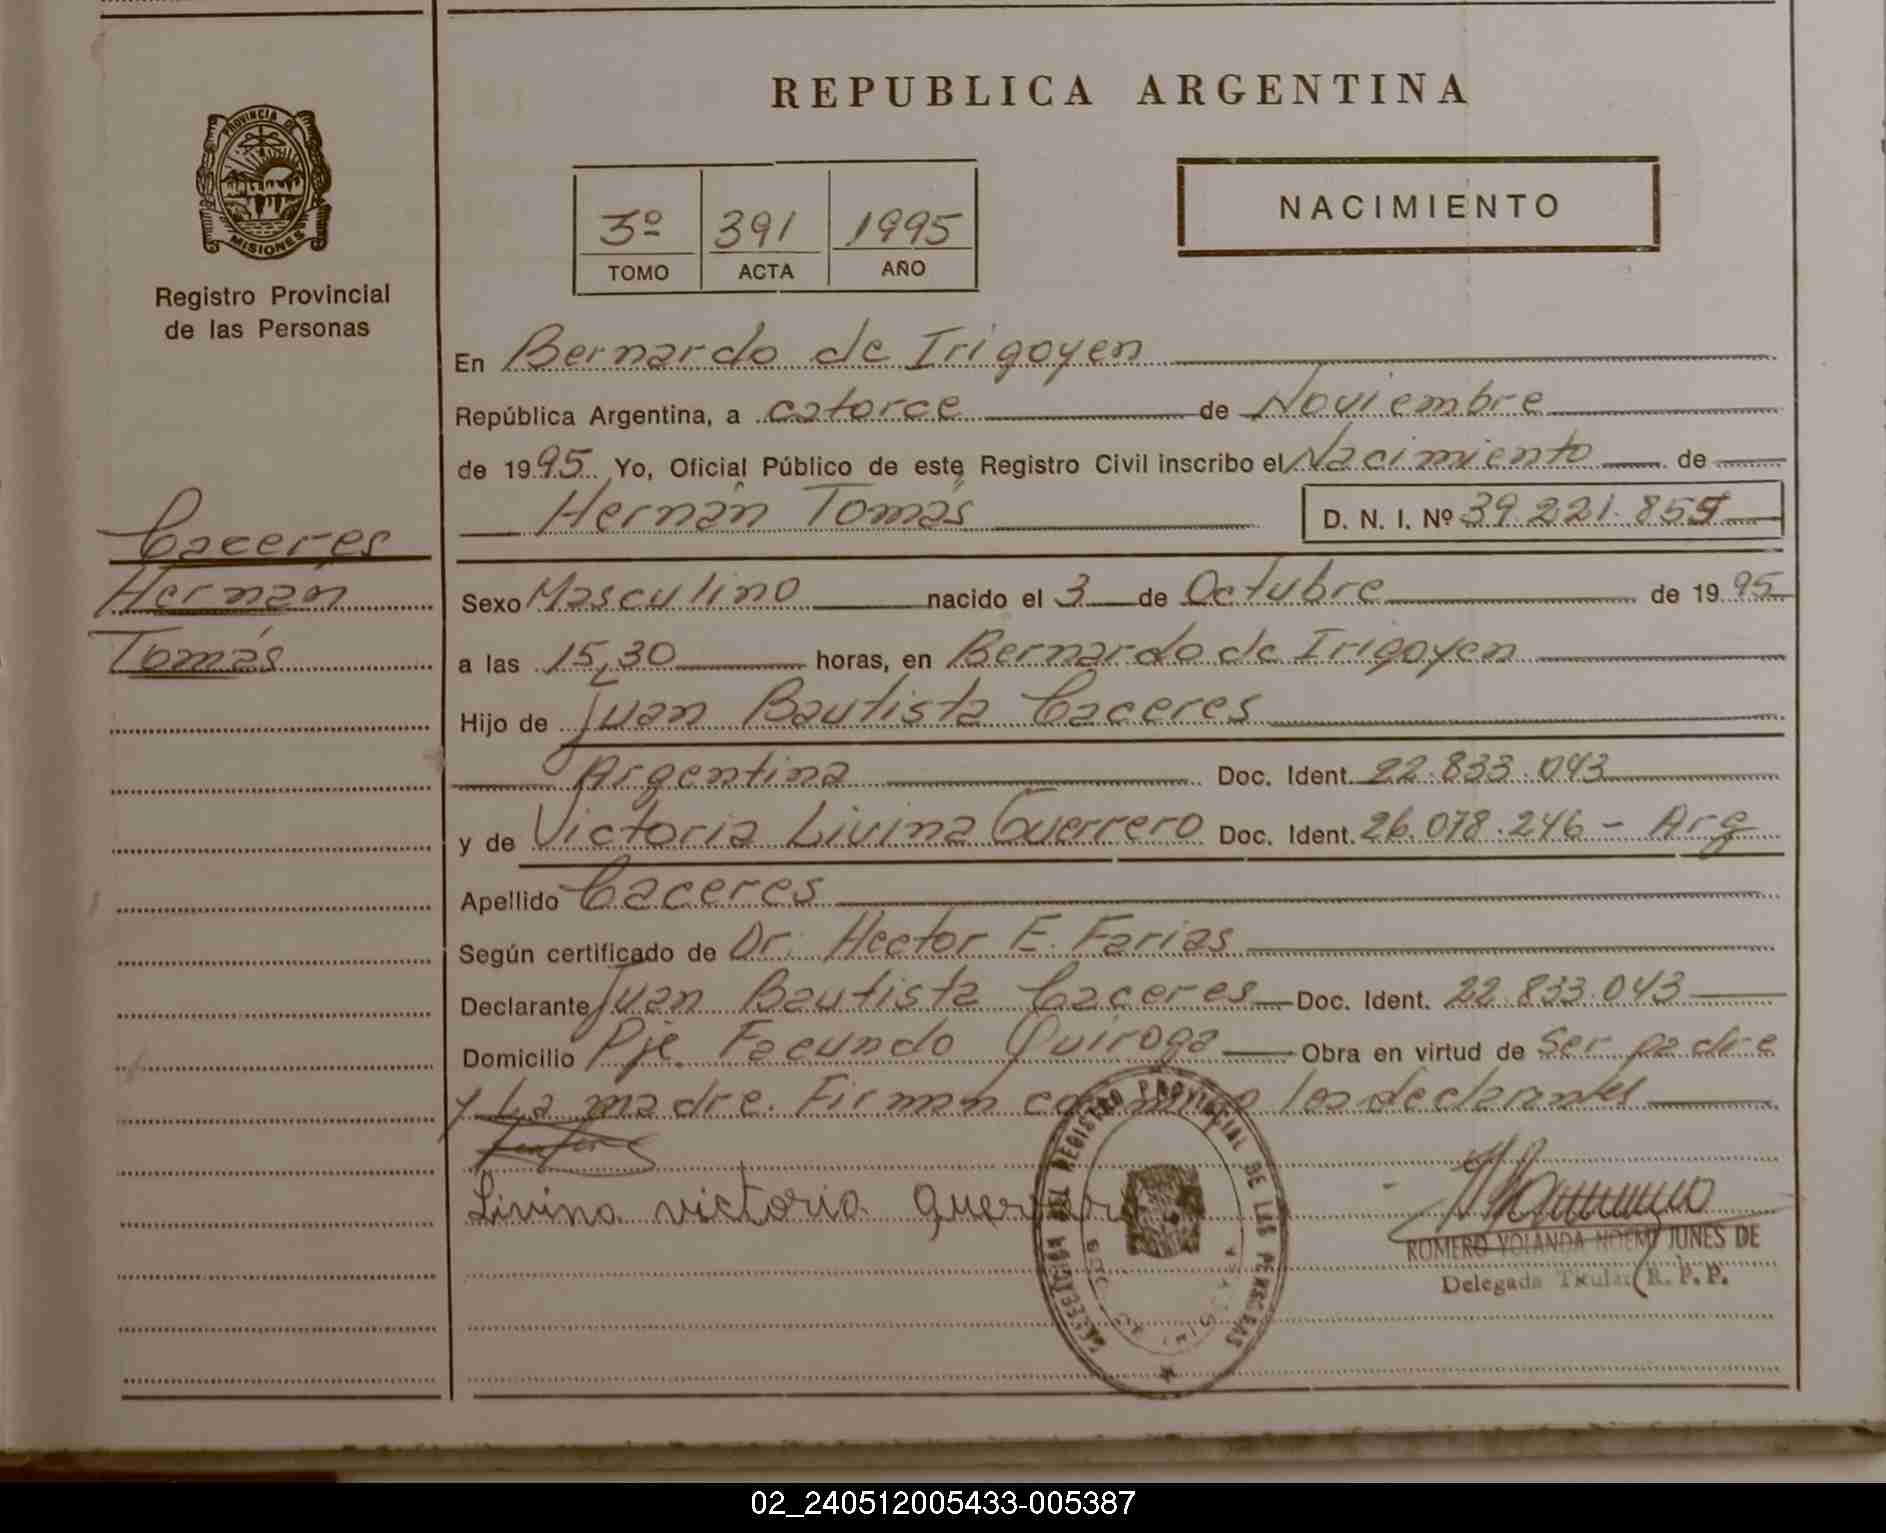 REPUBLICA ARGENTINA
PROVINCIA DE
MISIONES
Registro Provincial
de las Personas
3º 391 1995
TOMO ACTA AÑO
NACIMIENTO
En Bernardo de Irigoyen
República Argentina, a catorce de Noviembre
de 1995 Yo, Oficial Público de este Registro Civil inscribo el Nacimiento de
Hernán Tomás D. N. I. Nº 39.221.855
Caceres
Hernán
Tomás
Sexo Masculino nacido el 3 de Octubre de 1995
a las 15,30 horas, en Bernardo de Irigoyen
Hijo de Juan Bautista Caceres
Argentina Doc. Ident. 22.833.043
y de Victoria Livina Guerrero Doc. Ident. 26.078.246 - Arg
Apellido Caceres
Según certificado de Dr. Hector E. Farias
Declarante Juan Bautista Caceres Doc. Ident. 22.833.043
Domicilio Pje. Facundo Quiroga Obra en virtud de Ser padre
y La madre. Firman conmigo los declarantes
Livina victoria guerrero
DEL REGISTRO PROVINCIAL DE LAS PERSONAS
ROMERO YOLANDA NOEMI JUNES DE
Delegada Titular R. P. P.
02_240512005433-005387